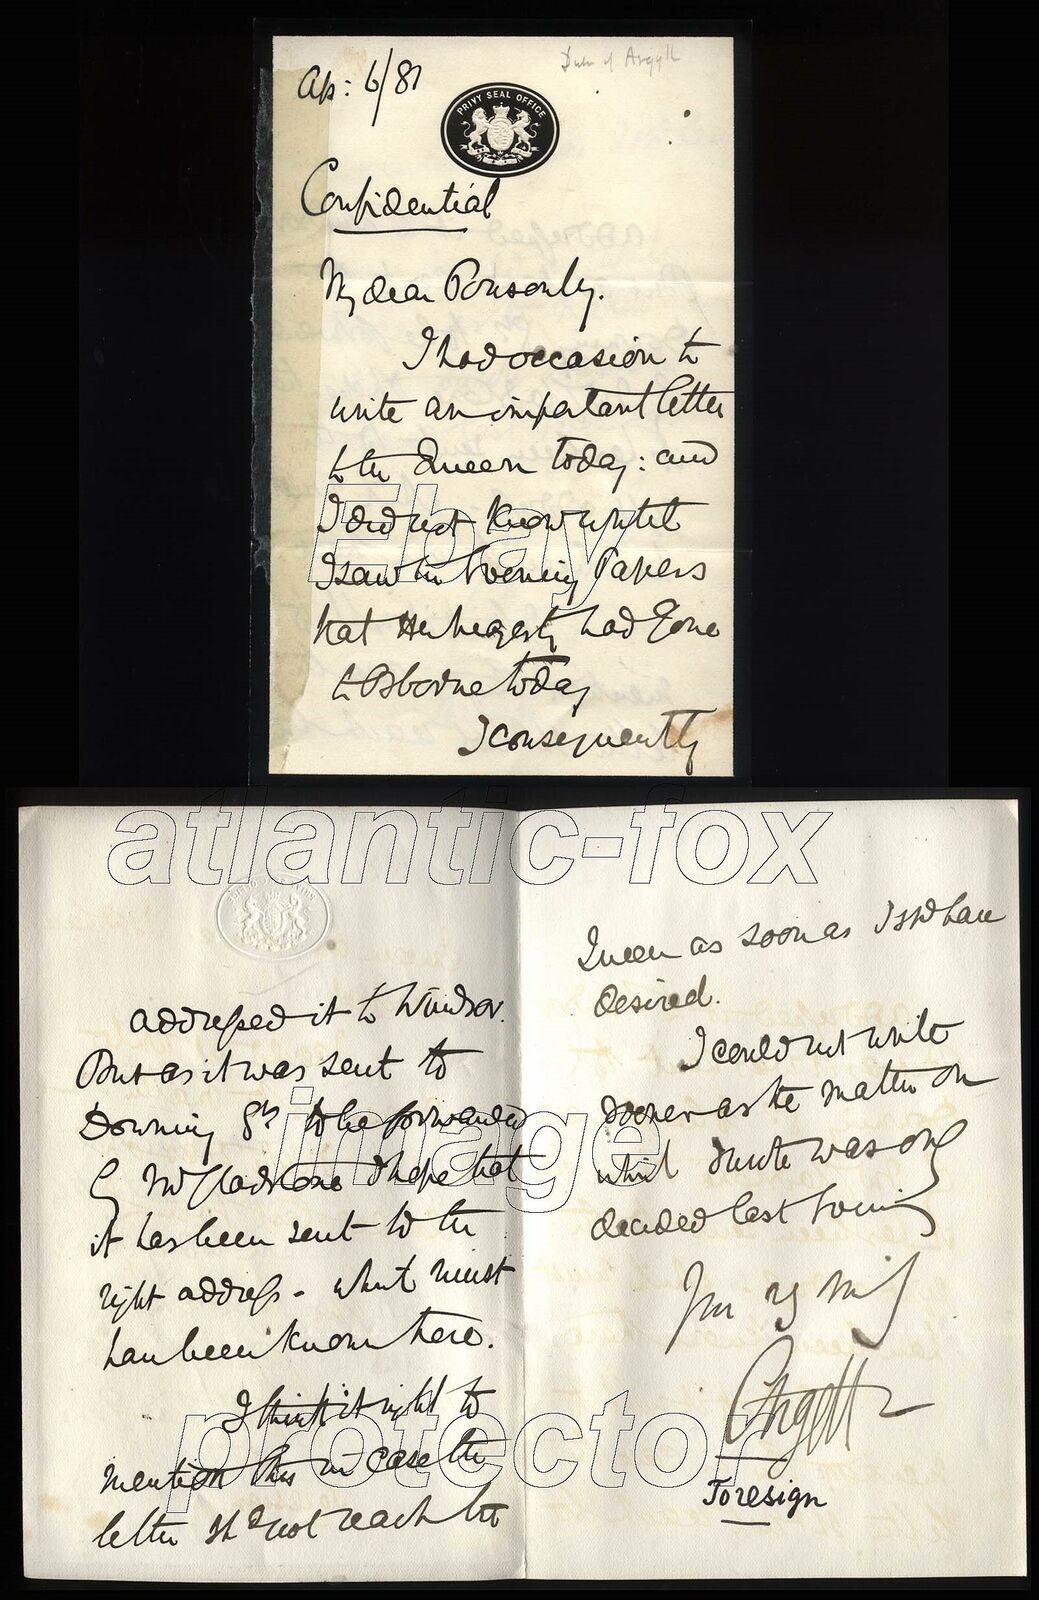 Duke of Argyll
Ap: 6/81
PRIVY SEAL OFFICE
Confidential
My dear Ponsonby.
I had occasion to
write an important letter
to the Queen today: and
I did not know until
I saw the Evening Papers
that Her Majesty had gone
to Osborne today
I consequently
addressed it to Windsor.
But as it was sent to
Downing St to be forwarded
by Mr Gladstone I hope that
it has been sent to the
right address - which must
have been known here.
I think it right to
mention this in case the
letter shd not reach the
Queen as soon as I shd have
desired.
I could not write
sooner as the matter on
which I wrote was only
decided last Evening
Yrs
Argyll
To resign
Ebay
atlantic-fox
image
protector